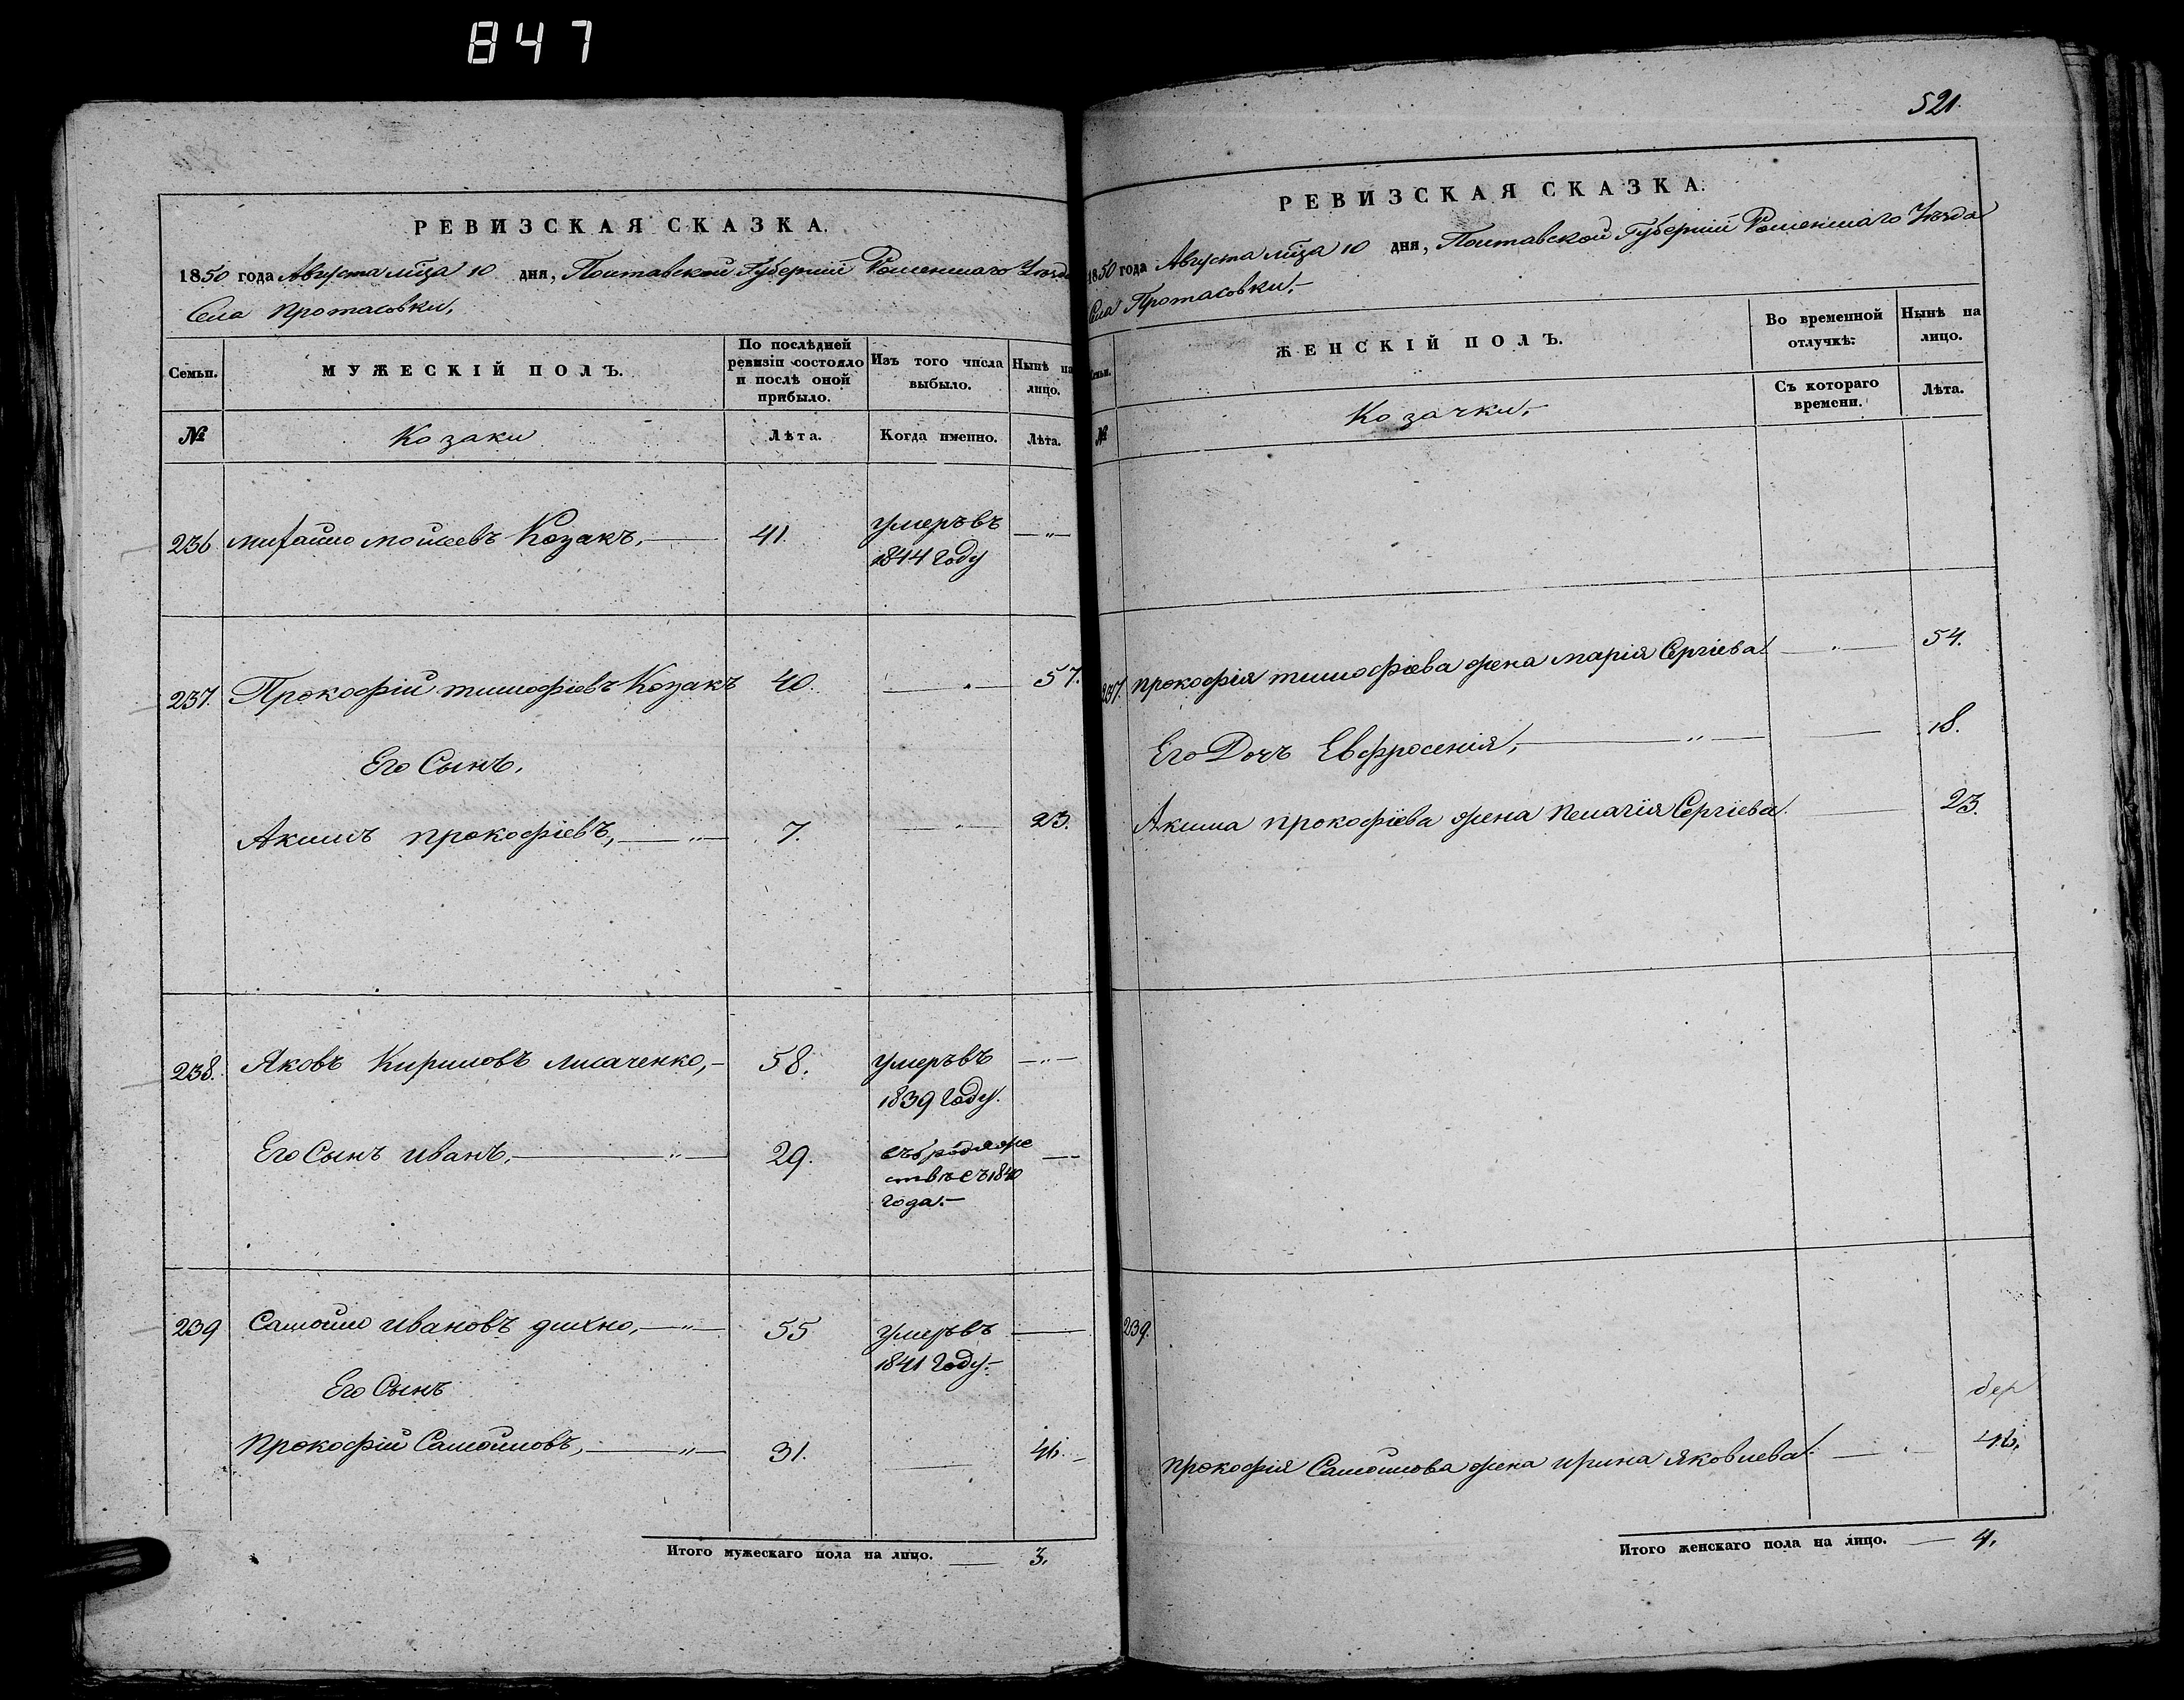 847
РЕВИЗСКАЯ СКАЗКА.
1850 года Августа мца 10 дня, Полтавской Губернии Роменскаго Уезда
Села Протасовки,
Семьи. МУЖЕСКІЙ ПОЛЪ. По послѣдней ревизіи состояло и послѣ оной прибыло. Изъ того числа выбыло. Нынѣ на лицо.
№ Козаки Лѣта. Когда именно. Лѣта.
236 Михайло Моисеевъ Козакъ, 41. умеръ въ
1844 году
237. Прокофій Тимофіевъ Козакъ 40. 57.
Его Сынъ,
Акимъ Прокофіевъ, 7. 23.
238. Яковъ Кириловъ Лисаченко, 58. умеръ въ
1839 году.
Его Сынъ Иванъ, 29. съ бродяже
ствѣ съ 1840
года.
239 Самойло Ивановъ 55 умеръ въ
1841 году.
Его Сынъ
Прокофій Самойловъ, 31. 46.
Итого мужескаго пола на лицо. 3.
521.
РЕВИЗСКАЯ СКАЗКА.
1850 года Августа мца 10 дня, Полтавской Губерніи Роменскаго Уезда
Села Протасовки,
Семьи. ЖЕНСКІЙ ПОЛЪ. Во временной отлучкѣ: Нынѣ на лицо.
№ Козачки, Съ котораго времени. Лѣта.
237. Прокофія Тимофіева жена Марія Сергіева 54.
Его Дочъ Евфросенія, 18.
Акима Прокофіева жена Пелагія Сергіева 23.
239.
Прокофія Самойлова жена Ирина Яковлева 46.
Итого женскаго пола на лицо. 4.